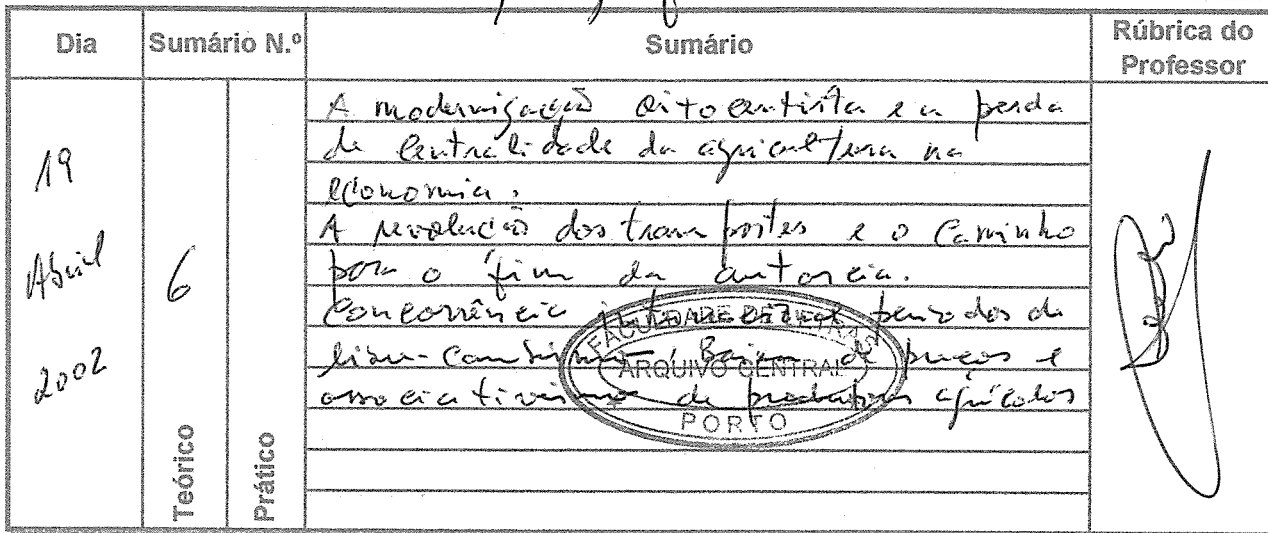 Dia Sumário N.º Sumário Rúbrica do Professor
19 Abril 2002
6
Teórico
Prático
A modernização oitocentista e a perda
de centralidade da agricultura na
economia.
A revolução dos transportes e o caminho
para o fim da autarcia.
Concorrência internacional períodos de
livre-cambismo, Baixa de preços e
associativismo de produtores agrícolas
FACULDADE DE LETRAS
ARQUIVO CENTRAL
PORTO